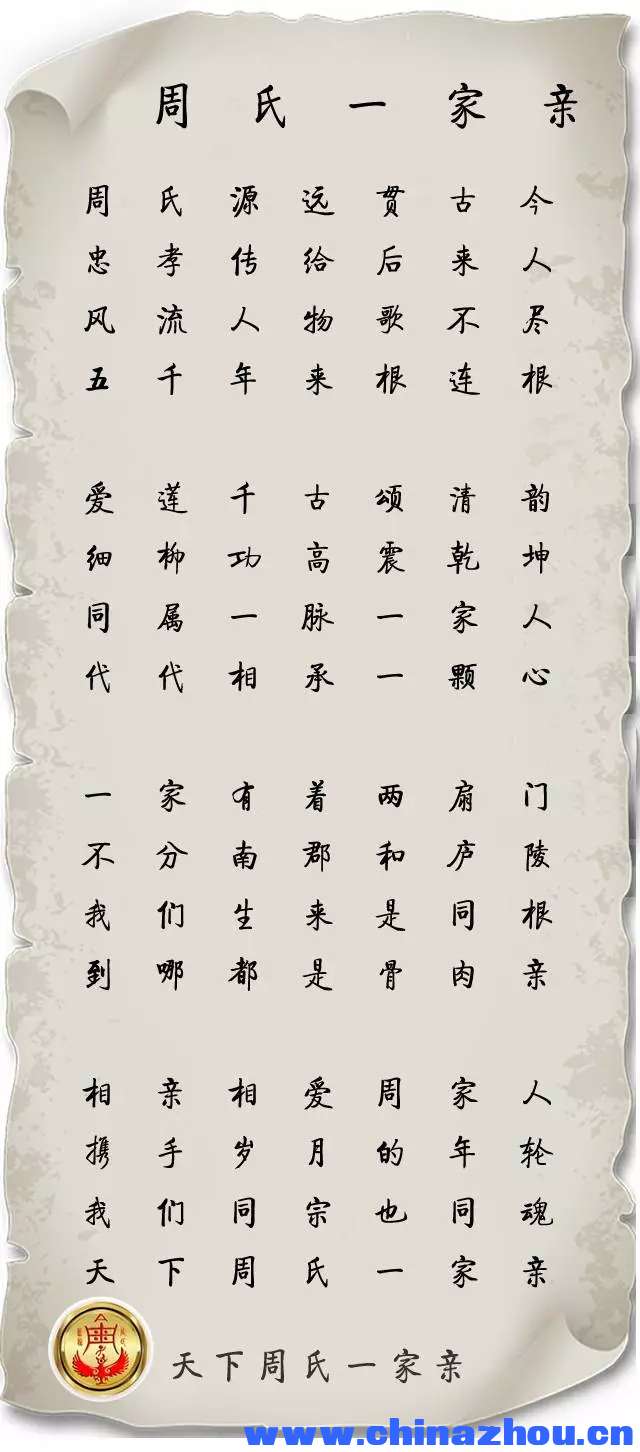 周氏一家亲
周氏源远贯古今
忠孝传给后来人
风流人物歌不尽
五千年来根连根
爱莲千古颂清韵
细柳功高震乾坤
同属一脉一家人
代代相承一颗心
一家有着两扇门
不分南郡和庐陵
我们生来是同根
到哪都是骨肉亲
相亲相爱周家人
携手岁月的年轮
我们同宗也同魂
天下周氏一家亲
天下周氏一家亲
www.chinazhou.cn